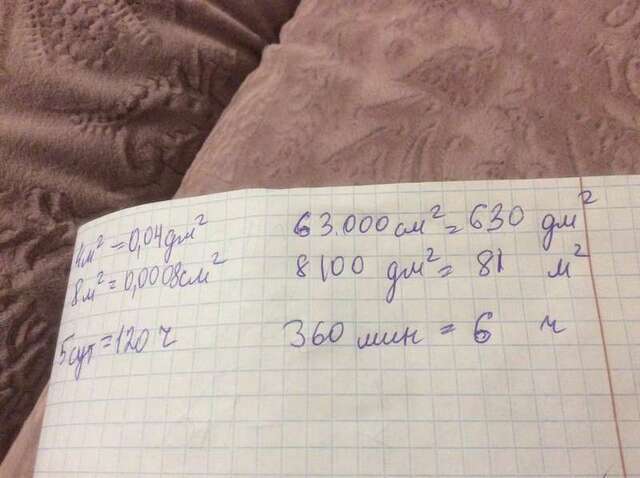 4м² = 0,04дм² 63.000 см² = 630 дм²
8м² = 0,0008см² 8100 дм² = 81 м²
5сут = 120 ч 360 мин = 6 ч